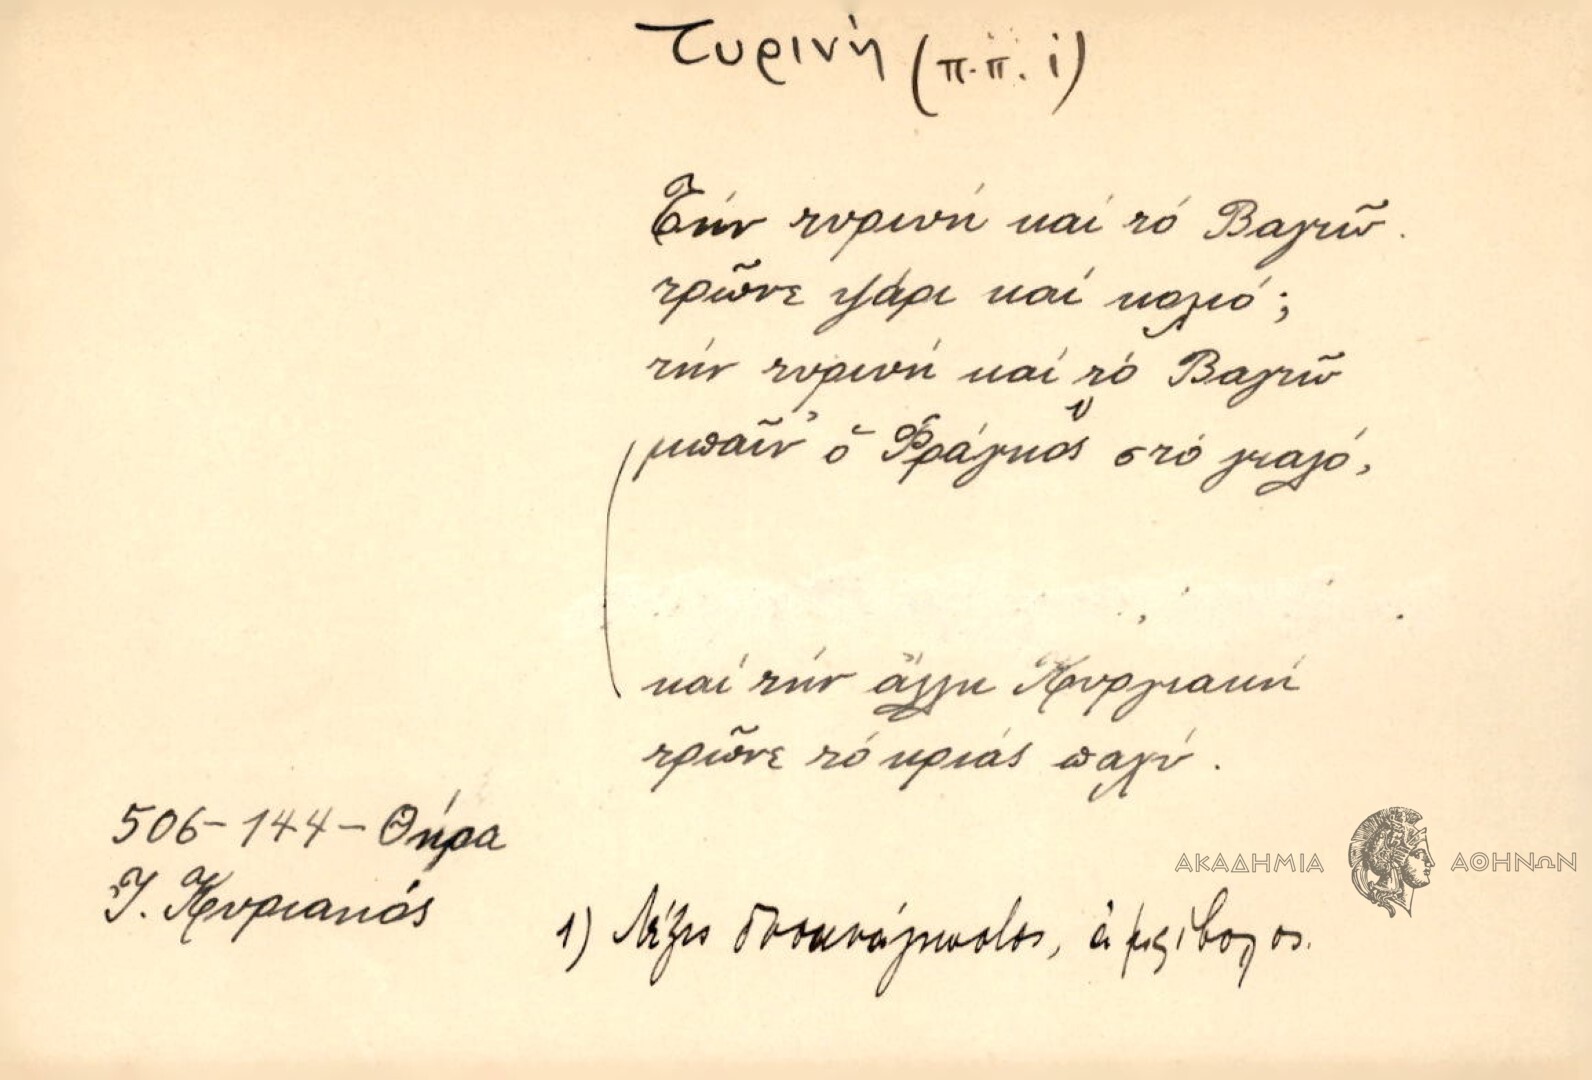 Τυρινή (π.π. ἱ)
Τήν τυρινή καί τό Βαγιῶ.
τρῶνε ψάρι καί κολιό;
τήν τυρινή καί τό Βαγιῶ
μπαῖν' ὁ Φράγκος 1) στό γιαλό,
καί τήν ἄλλη Κυργιακή
τρῶνε τό κριάς παλύ.
506-144-Θήρα
Ι. Κυριακός
1) Λέξις δυσανάγνωστος, ἀμφίβολος.
ΑΚΑΔΗΜΙΑ ΑΘΗΝΩΝ